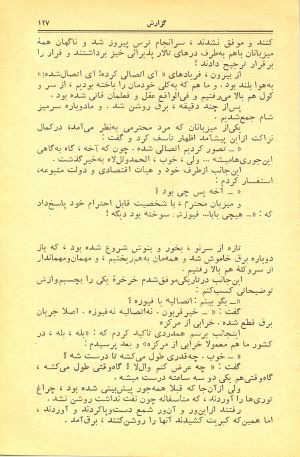 گزارش
۱۲۷
کنند و موفق نشدند ، سرانجام ترس پیروز شد و ناگهان همهٔ
میزبانان باهم به‌طرف درهای تالار پذیرائی خیز برداشتند و فرار را
برقرار ترجیح دادند !
از بیرون ، فریادهای « آی اتصالی کرده! آی اتصالی شده!»
به‌هوا بلند بود . و ما هم که به‌کلی خودمان را باخته بودیم ، از سر و
کول هم بالا می‌رفتیم و فی‌الواقع عقل و فعلمان قاتی شده بود.
پس از چند دقیقه ، برق روشن شد . و مادوباره سرمیز
شام جمع‌شدیم .
یکی‌از میزبانان که مرد محترمی به‌نظر می‌آمد، درکمال
نزاکت ازاین پیشامد اظهار تاسف کرد و گفت :
« ــ تصور کردیم اتصالی شده. چون که آخه ، گاه به‌گاهی
این‌جوری‌هامیشه ... ولی ، خوب ، الحمدوالله به‌خیرگذشت .
این‌جانب ازطرف خود و هیات اقتصادی و دولت متبوعه،
استفسار کردم :
« ــ آخه پس چی بود؟
و میزبان محترم ، با شخصیت قابل احترام خود پاسخ‌داد
که : «ــ هیچی بابا... فیوزش سوخته بود دیگه !
تازه از سرنو ، بخور و بنوش شروع شده بود ، که باز
دوباره برق خاموش شد و همه‌مان به‌هم‌ریختیم ، و مهمان‌ومهماندار
از سروکلهٔ هم بالا رفتیم .
این‌جانب درتاریکی‌موفق‌شدم خرخرهٔ یکی را بچسبم‌وازش
توضیحاتی کسب‌کنم :
«ــ بگو ببینم : اتصالیه یا فیوزه ؟
گفت : «ــ خیرقربون . نه‌اتصالیه نه‌فیوزه . اصلا جریان
برق قطع شده. خرابی از مرکزه»
این‌جانب برسم همدردی تاکید کردم که : «بله ، بله ، در
کشور ما هم معمولا خرابی از مرکزه» و بعد پرسیدم :
« ــ خوب . چه‌قدری طول می‌کشه تا درست شه ؟
گفت : « چه عرض کنم والّا ؟ گاه‌وقتی طول می‌کشه ،
گاه‌وقتی‌هم یکی دو سه ساعته درست میشه .
ولی ازآن‌جا که قبلا همه‌جور پیش‌بینی شده بود ، چراغ
توری‌ها را آوردند، که متاسفانه چون نفت نداشت روشن نشد.
رفتند ازاین‌ور و آن‌ور شمع دست‌وپاکردند و آوردند ،
اما همین‌که کبریت کشیدند آنها را روشن‌کنند ، برق‌آمد .